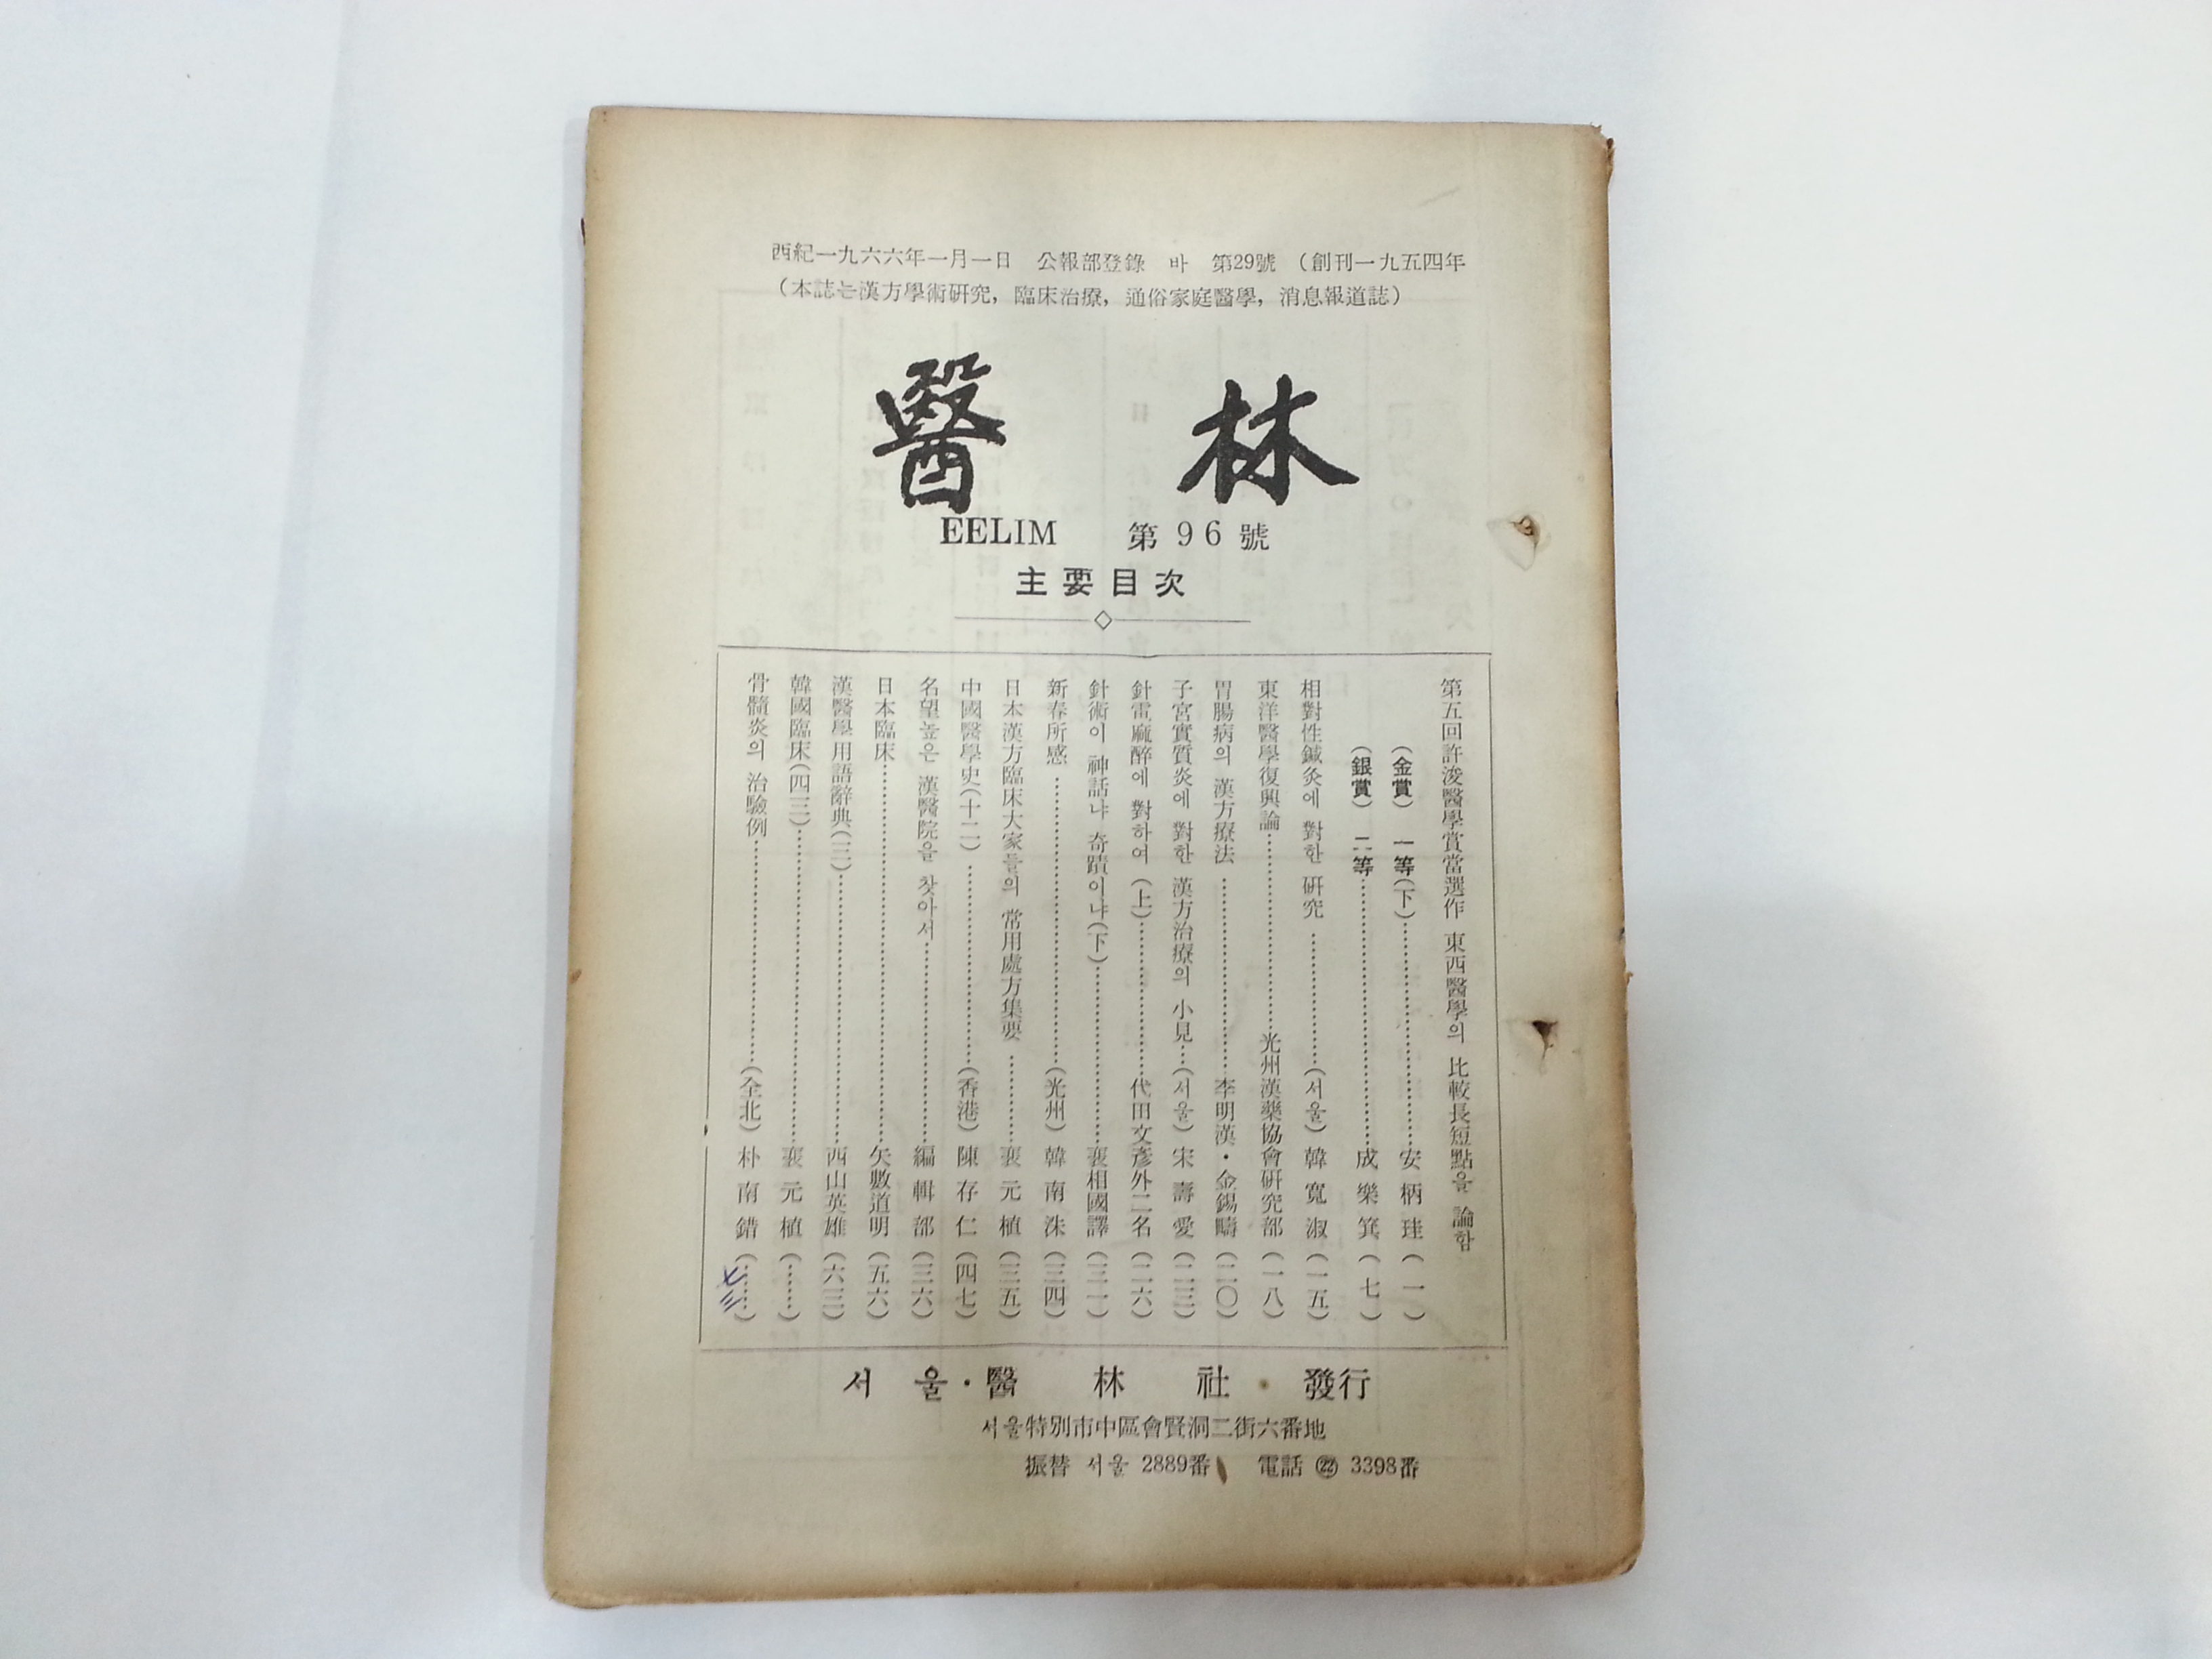 西紀一九六六年一月一日 公報部登錄 바 第29號 (創刊一九五四年
(本誌는漢方學術研究, 臨床治療, 通俗家庭醫學, 消息報道誌)
醫林
EELIM 第96號
主要目次
第五回許浚醫學賞當選作 東西醫學의 比較長短點을 論함
(金賞) 一等(下)……安柄珪(一)
(銀賞) 二等……成樂箕(七)
相對性鍼灸에 對한 研究……(서울) 韓寬淑(一五)
東洋醫學復興論……光州漢藥協會研究部(一八)
胃腸病의 漢方療法……李明漢・金錫疇(二〇)
子宮實質炎에 對한 漢方治療의 小見……(서울) 宋壽愛(二三)
針電麻醉에 對하여 (上)……代田文彥外二名(二六)
針術이 神話냐 奇蹟이냐(下)……裵相國譯(三一)
新春所感……(光州) 韓南洙(三四)
日本漢方臨床大家들의 常用處方集要……裵元植(三五)
中國醫學史(十二)……(香港) 陳存仁(四七)
名望높은 漢醫院을 찾아서……編輯部(三六)
日本臨床……矢數道明(五六)
漢醫學用語辭典(三)……西山英雄(六三)
韓國臨床(四三)……裵元植(……)
骨髓炎의 治驗例……(全北) 朴南錯(……)
서울・醫林社・發行
서울特別市中區會賢洞二街六番地
振替 서울 2889番 電話 ㉒ 3398番